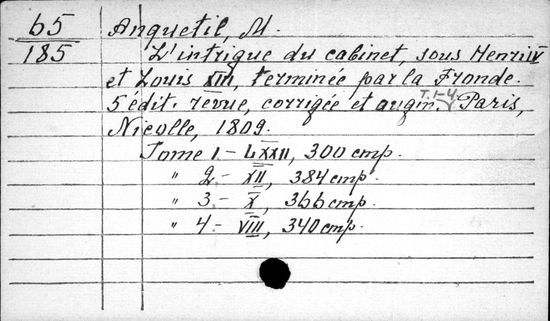 65
185
Anquetil, M.
L'intrigue du cabinet, sous Henri IV
et Louis XIII, terminée par la Fronde.
5 édit. revue, corrigée et augm. T.1-4. Paris,
Nicolle, 1809.
Tome 1.- LXXII, 300 cmp.
" 2.- XII, 384 cmp.
" 3.- X, 366 cmp.
" 4.- VIII, 340 cmp.